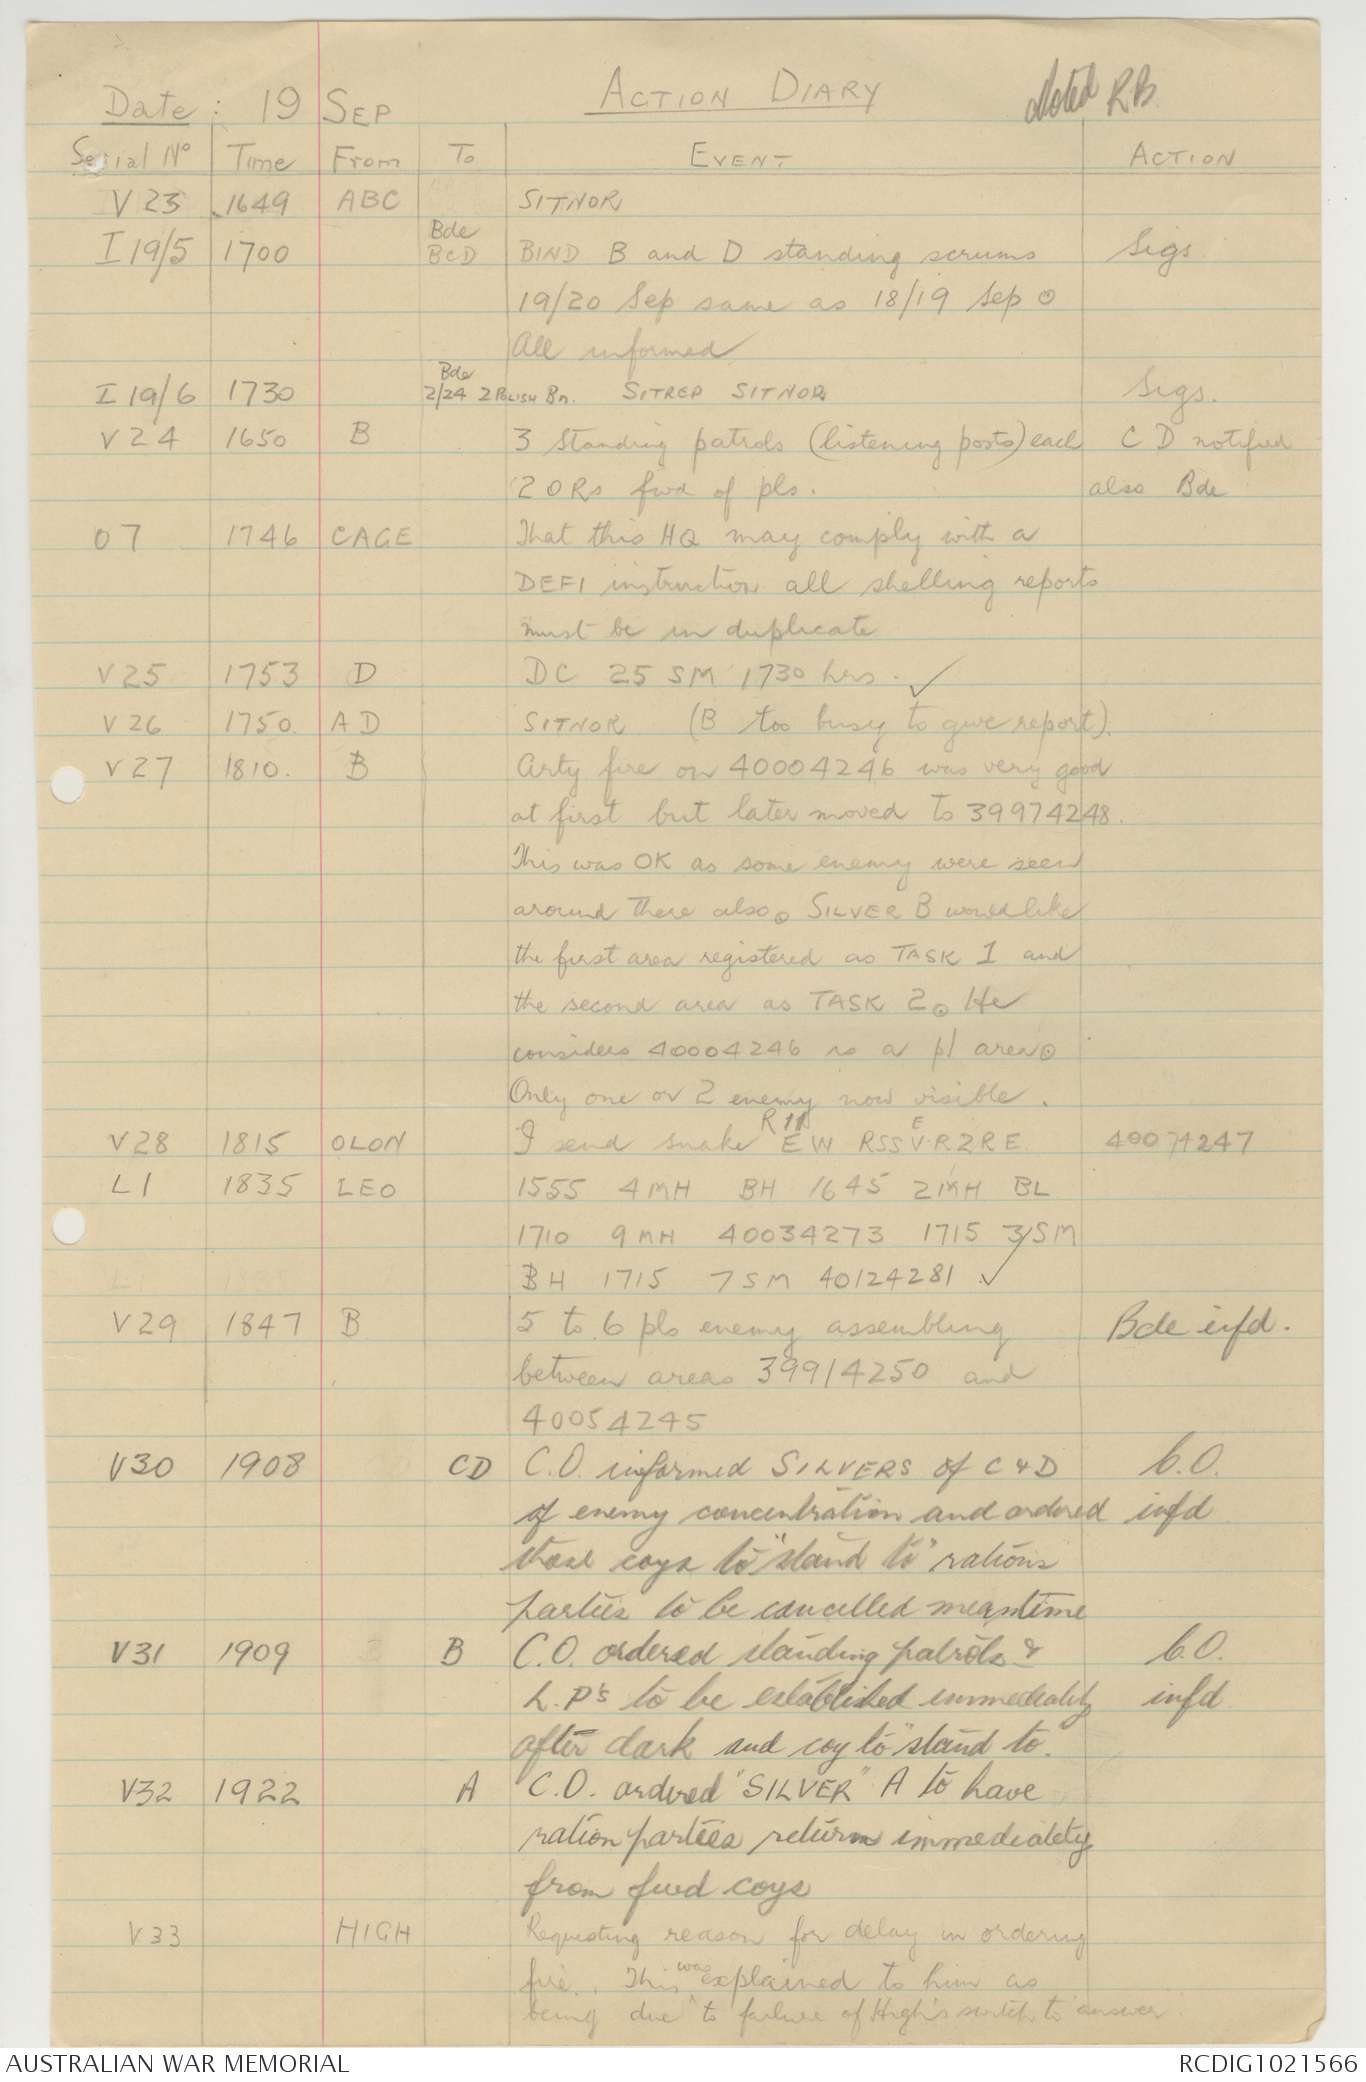 Date: 19 SEP ACTION DIARY Noted RB
Serial No Time From To EVENT ACTION
V23 1649 ABC SITNOR
I 19/5 1700 Bde BCD BIND B and D standing scrums Sigs
19/20 Sep same as 18/19 Sep ⊙
All informed
I 19/6 1730 Bde 2/24 2 POLISH Bn. SITREP SITNOR Sigs.
V24 1650 B 3 Standing patrols (listening posts) each C D notified
2 ORs fwd of pls. also Bde
07 1746 CAGE That this HQ may comply with a
DEFI instruction all shelling reports
must be in duplicate
V25 1753 D DC 25 SM 1730 hrs. ✓
V26 1750. AD SITNOR (B too busy to give report).
V27 1810. B Arty fire on 40004246 was very good
at first but later moved to 39974248.
This was OK as some enemy were seen
around there also⊙ SILVER B would like
the first area registered as TASK 1 and
the second area as TASK 2⊙ He
considers 40004246 is a pl area⊙
Only one or 2 enemy now visible.
V28 1815 OLON I send snake EW RSSV·RZRE 40074247
L1 1835 LEO 1555 4 MH BH 1645 2 MH BL
1710 9 MH 40034273 1715 3/SM
BH 1715 7 SM 40124281 ✓
V29 1847 B 5 to 6 pls enemy assembling Bde infd.
between areas 39914250 and
40054245
V30 1908 CD C.O. informed SILVERS of C & D C.O.
of enemy concentration and ordered infd
those coys to "stand to" rations
parties to be cancelled meantime
V31 1909 B C.O. ordered standing patrols & C.O.
L.P's to be established immediately infd
after dark and coy to "stand to".
V32 1922 A C.O. ordered "SILVER" A to have
ration parties return immediately
from fwd coys
V33 HIGH Requesting reason for delay in ordering
fire. This was explained to him as
being due to failure of High's switch to answer
AUSTRALIAN WAR MEMORIAL RCDIG1021566